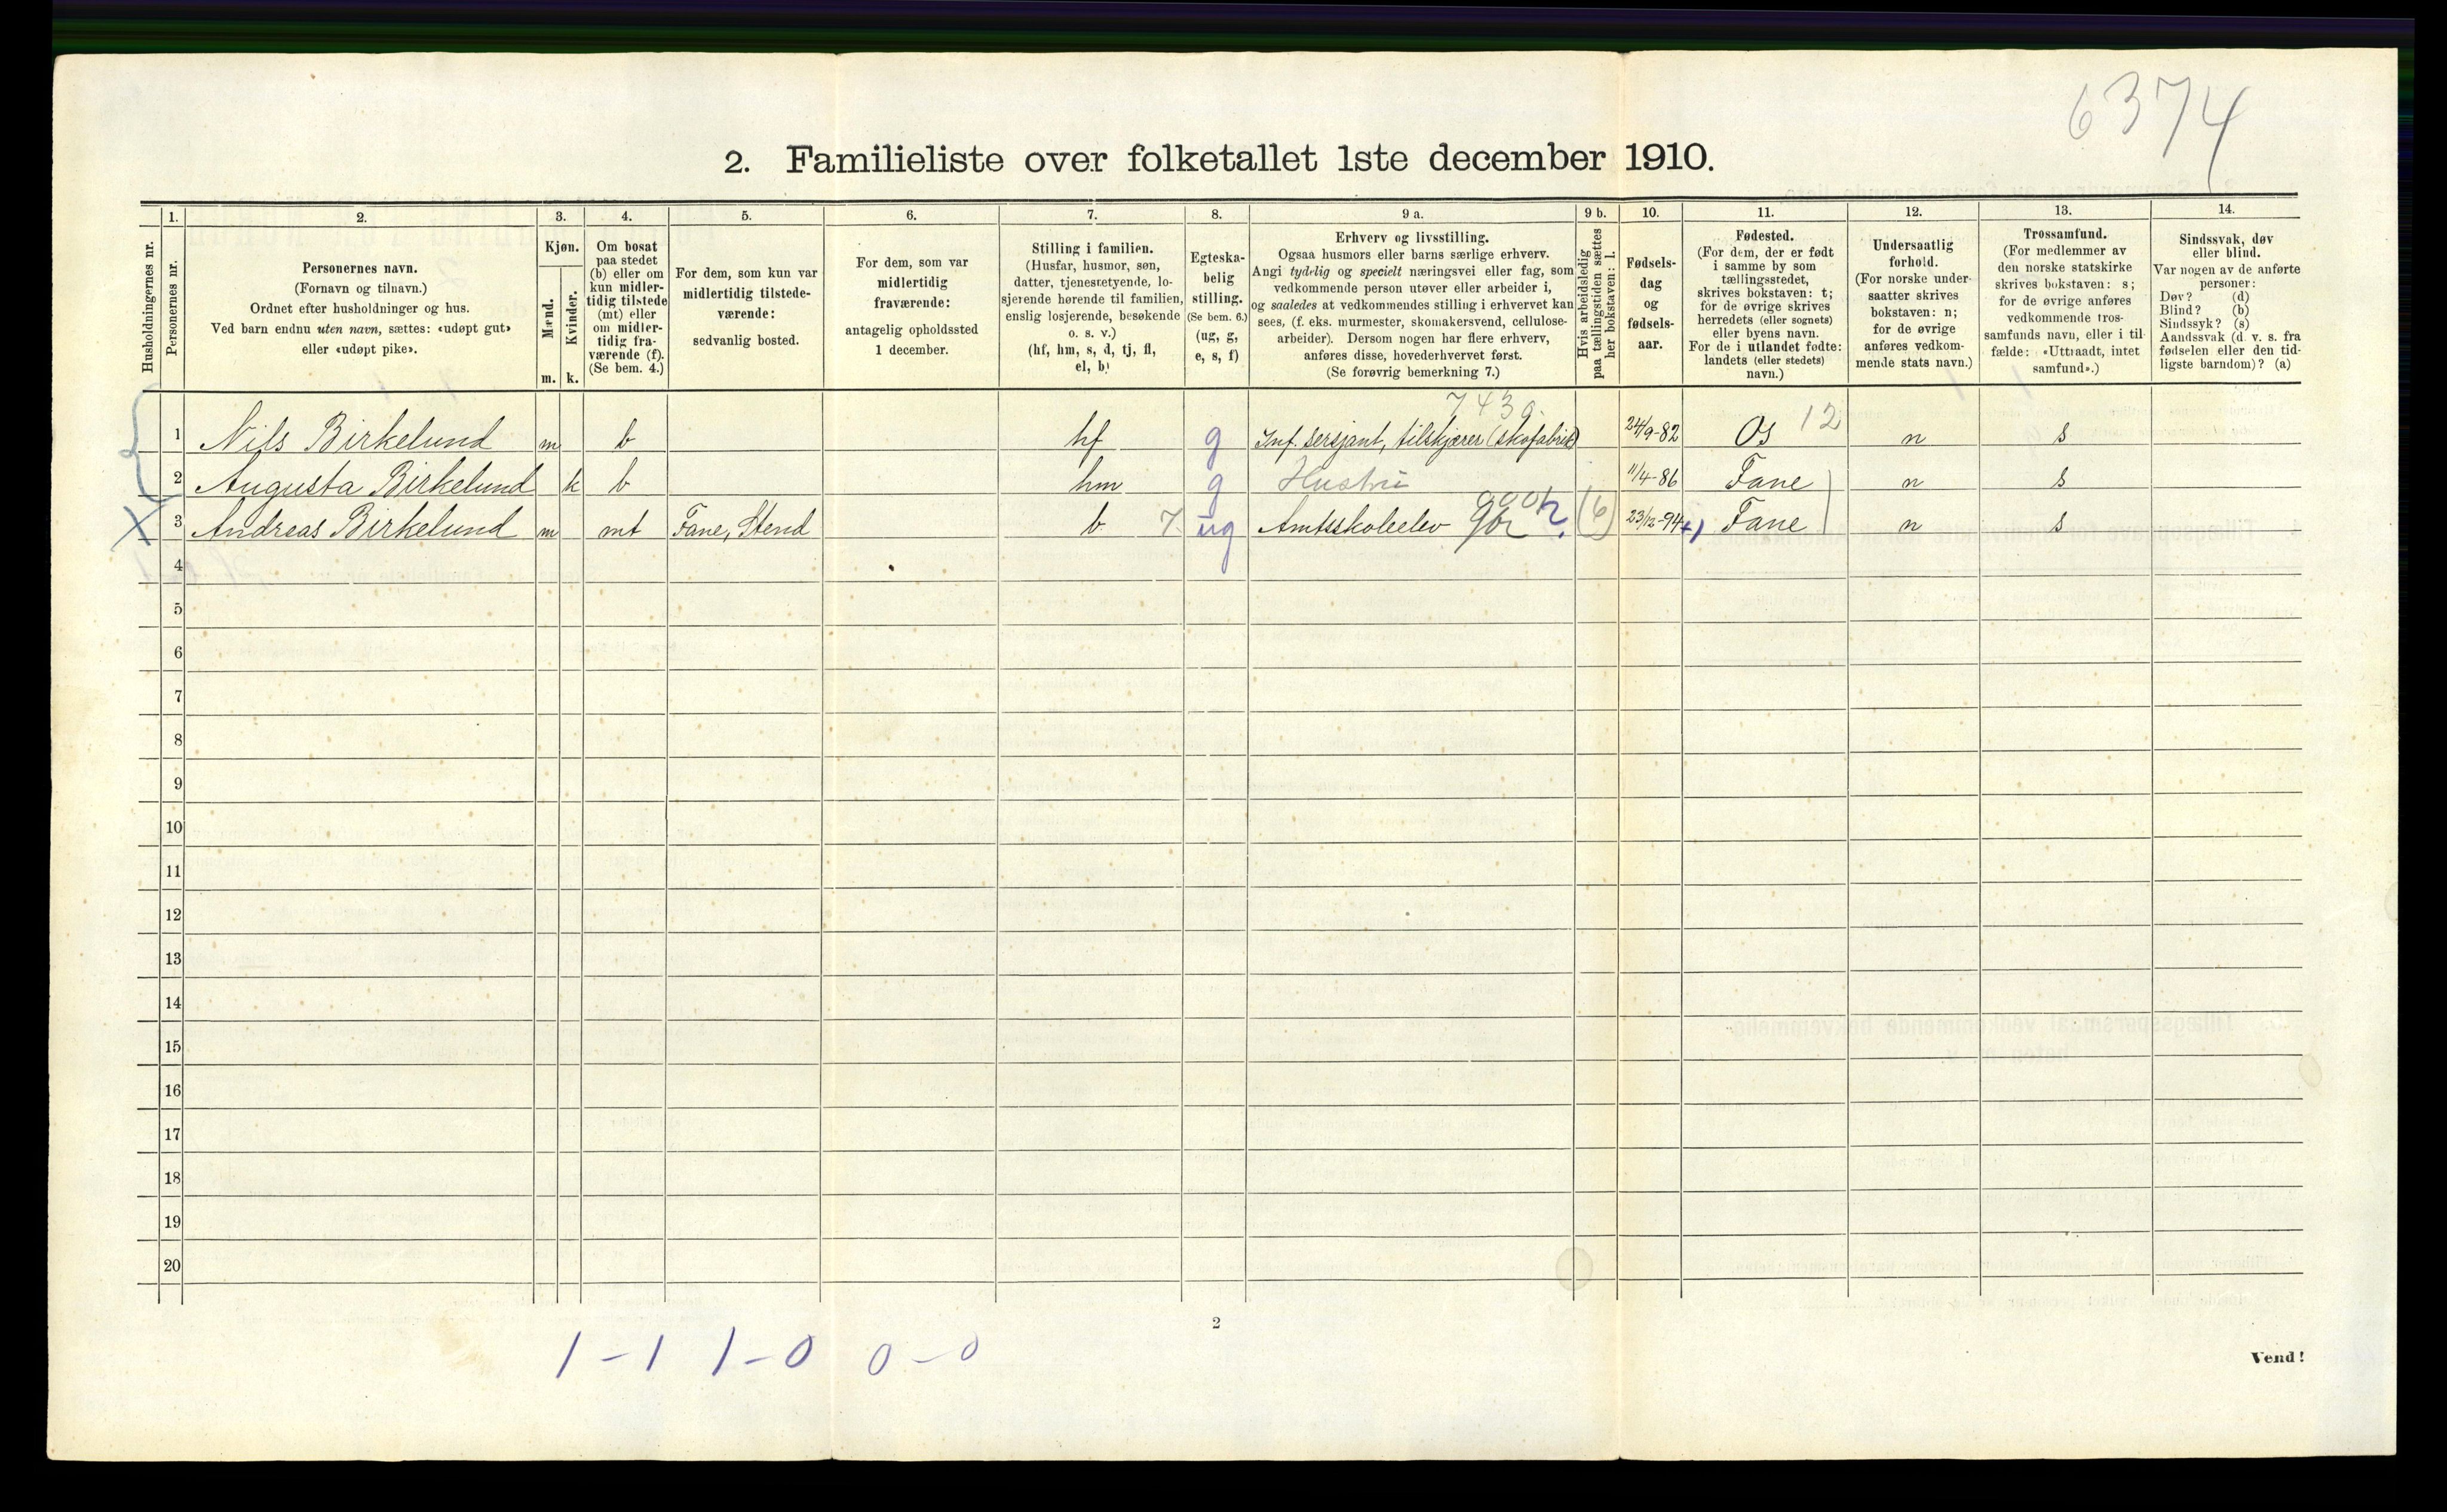 6374
2. Familieliste over folketallet 1ste december 1910.
1. 2. 3. 4. 5. 6. 7. 8. 9 a. 9 b. 10. 11. 12. 13. 14.
Husholdningernes nr.
Personernes nr.
Personernes navn.
(Fornavn og tilnavn.)
Ordnet efter husholdninger og hus.
Ved barn endnu uten navn, sættes: «udøpt gut»
eller «udøpt pike».
Kjøn.
Mænd.
Kvinder.
m. k.
Om bosat
paa stedet
(b) eller om
kun midler-
tidig tilstede
(mt) eller
om midler-
tidig fra-
værende (f).
(Se bem. 4.)
For dem, som kun var
midlertidig tilstede-
værende:
sedvanlig bosted.
For dem, som var
midlertidig
fraværende:
antagelig opholdssted
1 december.
Stilling i familien.
(Husfar, husmor, søn,
datter, tjenestetyende, lo-
sjerende hørende til familien,
enslig losjerende, besøkende
o. s. v.)
(hf, hm, s, d, tj, fl,
el, b)
Egteska-
belig
stilling.
(Se bem. 6.)
(ug, g,
e, s, f)
Erhverv og livsstilling.
Ogsaa husmors eller barns særlige erhverv.
Angi tydelig og specielt næringsvei eller fag, som
vedkommende person utøver eller arbeider i,
og saaledes at vedkommendes stilling i erhvervet kan
sees, (f. eks. murmester, skomakersvend, cellulose-
arbeider). Dersom nogen har flere erhverv,
anføres disse, hovederhvervet først.
(Se forøvrig bemerkning 7.)
Hvis arbeidsledig
paa tællingstiden sættes
her bokstaven: l.
Fødsels-
dag
og
fødsels-
aar.
Fødested.
(For dem, der er født
i samme by som
tællingsstedet,
skrives bokstaven: t;
for de øvrige skrives
herredets (eller sognets)
eller byens navn.
For de i utlandet fødte:
landets (eller stedets)
navn.)
Undersaatlig
forhold.
(For norske under-
saatter skrives
bokstaven: n;
for de øvrige
anføres vedkom-
mende stats navn.)
Trossamfund.
(For medlemmer av
den norske statskirke
skrives bokstaven: s;
for de øvrige anføres
vedkommende tros-
samfunds navn, eller i til-
fælde: «Uttraadt, intet
samfund».)
Sindssvak, døv
eller blind.
Var nogen av de anførte
personer:
Døv? (d)
Blind? (b)
Sindssyk? (s)
Aandssvak (d. v. s. fra
fødselen eller den tid-
ligste barndom)? (a)
743 g. 12
1 Nils Birkelund m b hf g Inf. sersjant, tilskjærer (skofabrik) 24/9-82 Os n s
2 Augusta Birkelund k b hm g Hustru 11/4-86 Fane n s
3 Andreas Birkelund m mt Fane, Stend b 7 ug Amtsskoleelev (6) 23/12-94 Fane n s
4
5
6
7
8
9
10
11
12
13
14
15
16
17
18
19
20
2
1-1 1-0 0-0
Vend!